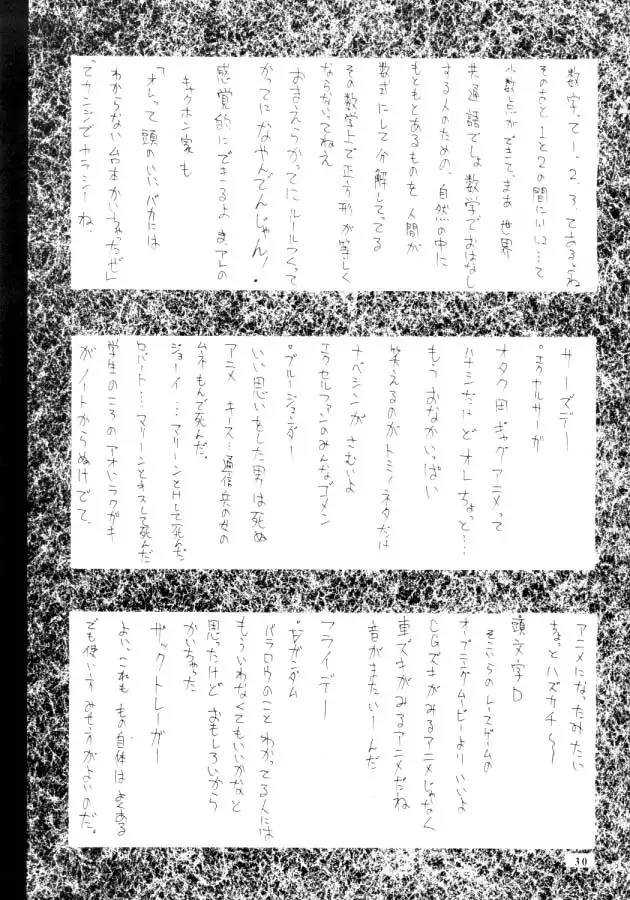 数字って1、2、3、てあるよね
そのあと1と2の間に1.1、1.2…って
小数点ができて、まあ世界
共通語でしょ数学でおはなし
する人のための、自然の中に
もともとあるものを人間が
数式にして分解してってる
その数学上で正方形が等しく
ならないってねえ
おまえらかってにルールつくって
かってになやんでんじゃん!
感覚的にできるよ ま、アレの
キャクホン家も
「オレって頭のいいバカには
わからない台本かいちゃったぜ」
ってカンジでイヤラシーね、
サーズデー
・エクセルサーガ
オタク用ギャグアニメって
ハナシだけどオレちょっと…
もうおなかいっぱい
笑えるのがトミノネタだけ
ナベシンがさむいよ
エクセルファンのみんなゴメン
・ブルージェンダー
いい思いをした男は死ぬ
アニメ キース…通信兵の女の
ムネもんで死んだ。
ジョーイ…マリーンとHして死んだ
ロバート…マリーンとキスして死んだ
学生のころのアオいラクガキ
がノートからぬけでて、
アニメになったみたいに
ちょっとハズカチ〜
頭文字D
そこいらのレースゲームの
オープニングムービーよりいいよ
CGズキがみるアニメじゃなく
車ズキがみるアニメだね
音がまたいーんだ
フライデー
・∀ガンダム
バラロウのことわかってる人には
もういわなくてもいいかなと
思ったけどおもしろいから
かいちゃった
ザックトレーガー
よい、これももの自体はよくある
でも使い方みせ方がよいのだ。
30